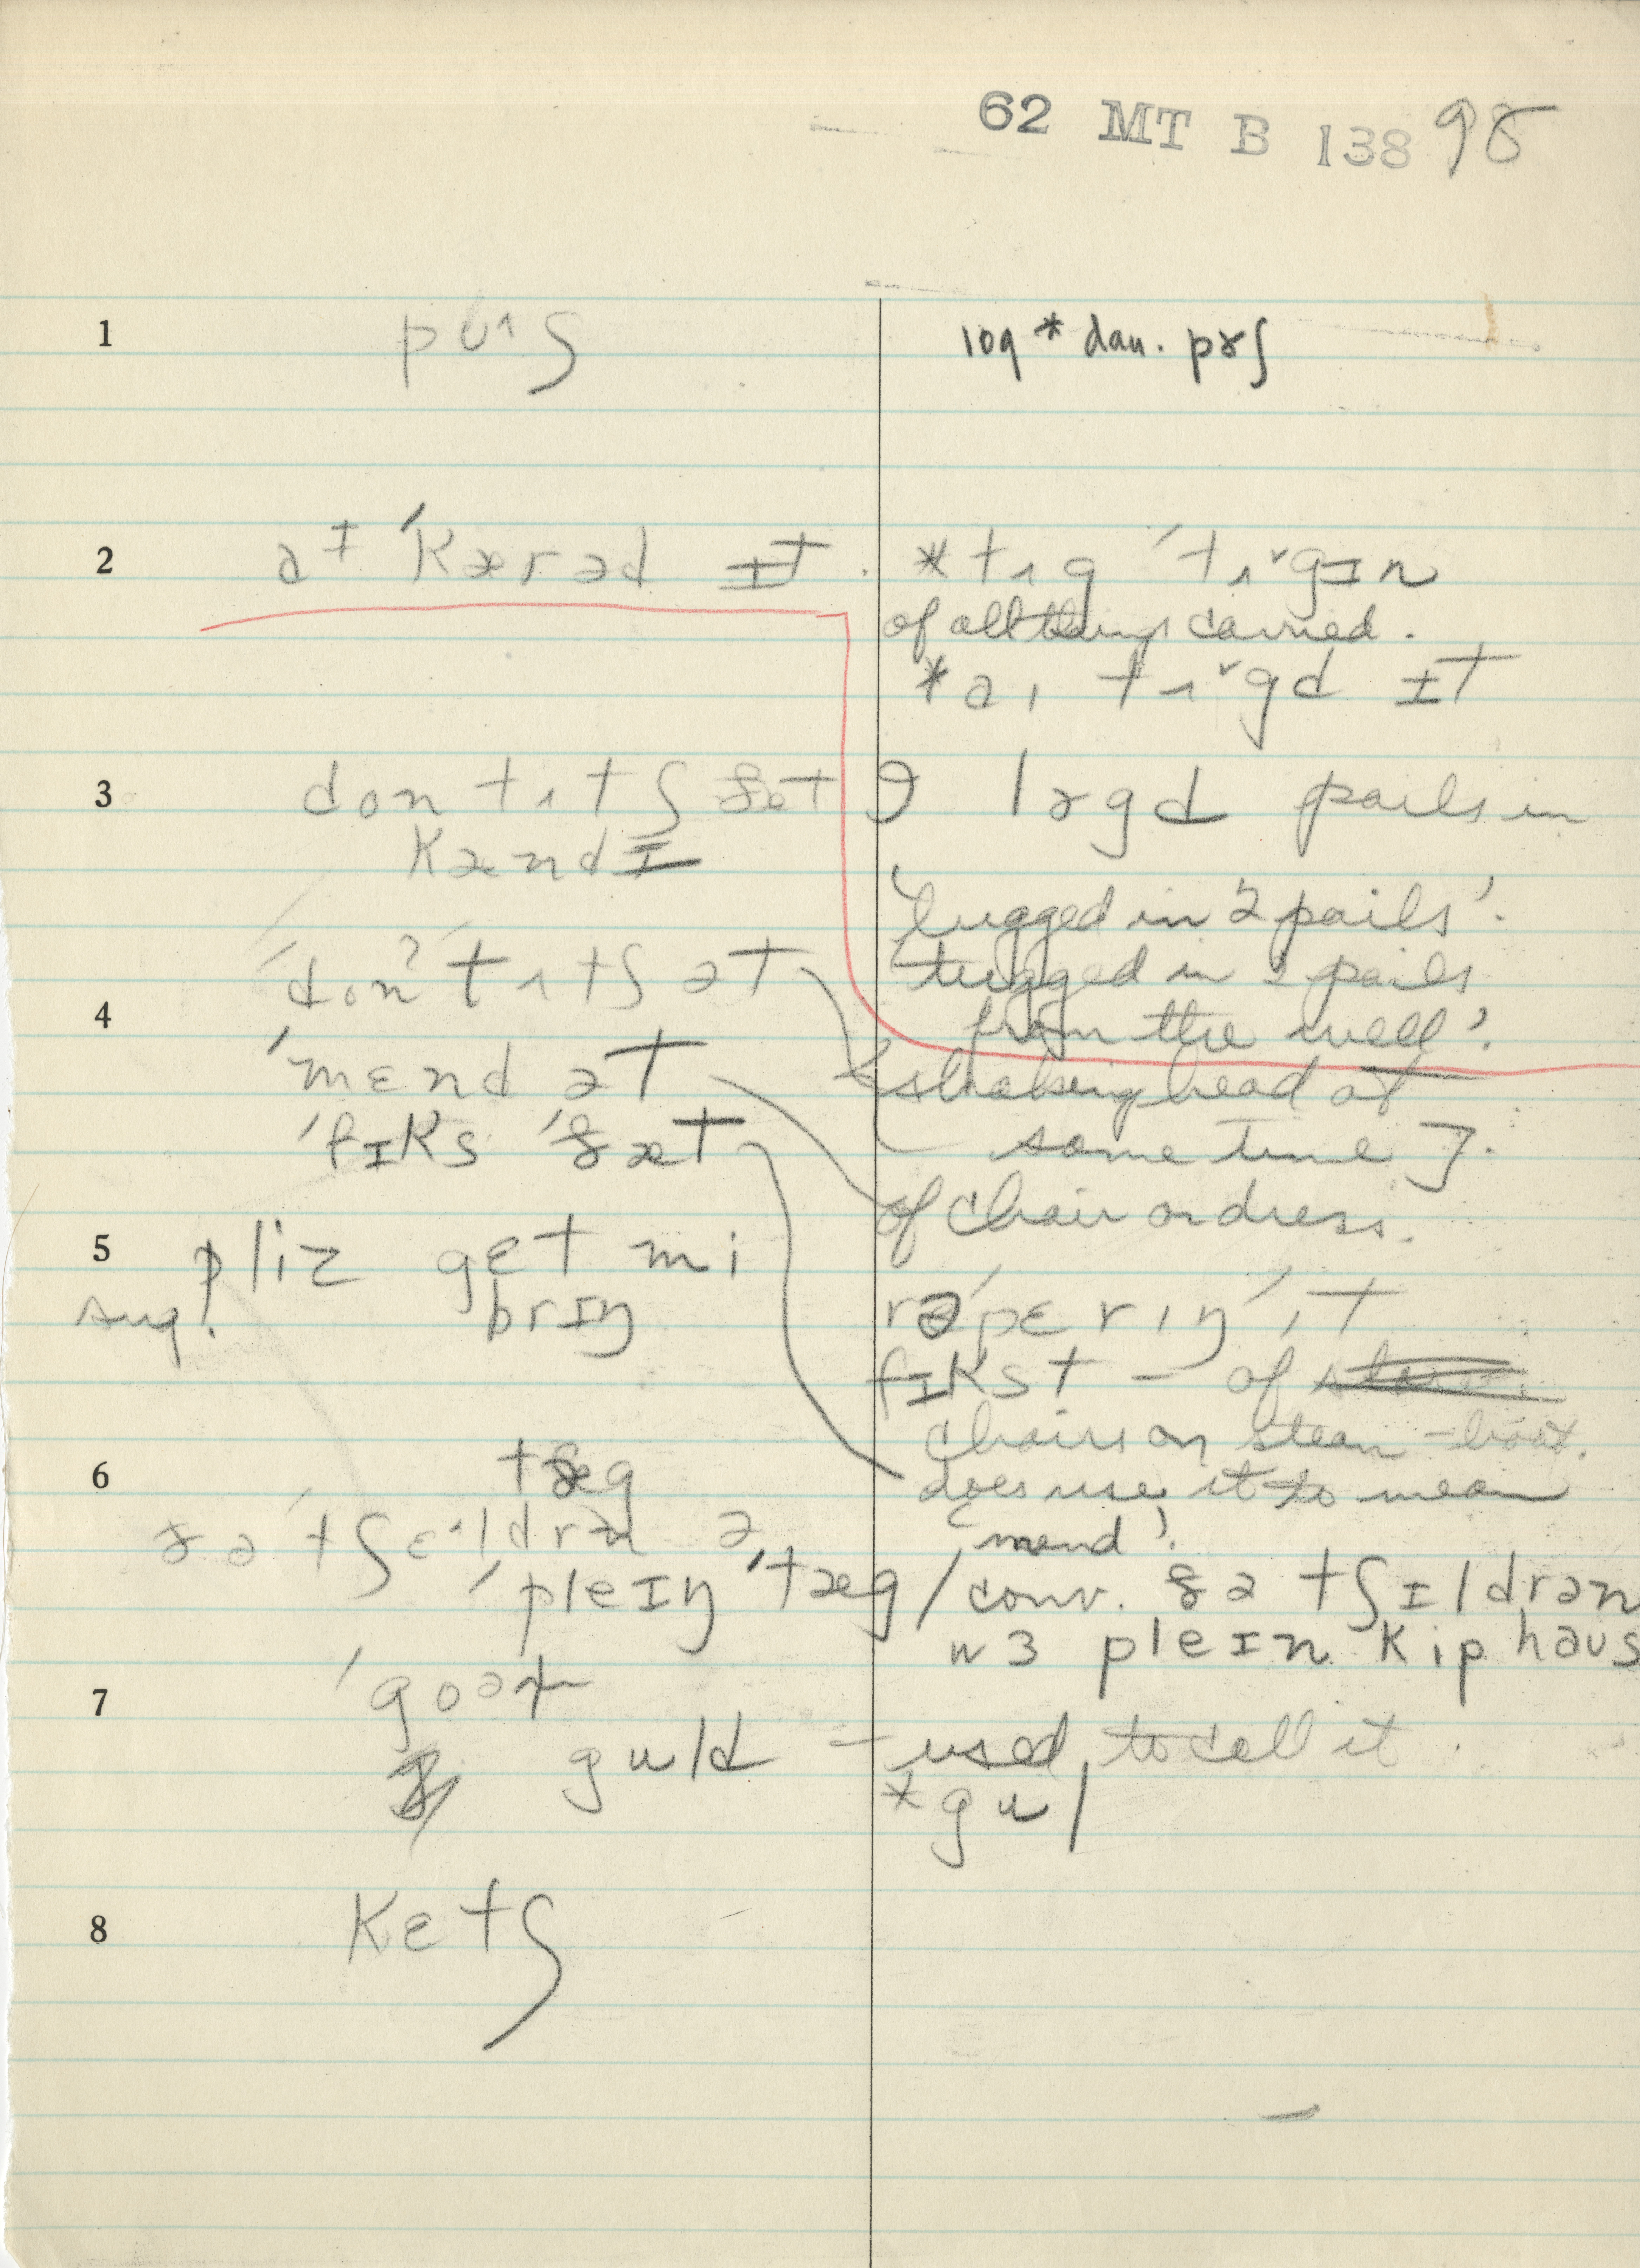 62 MT B 138 98
1 pʊˑʃ 109 * dau. pɤʃ
2 aᶧ ˈkærəd ɪt. *tʌg ˈtʌˇgɪn
of all things carried.
*aɪ tʌˇgd ɪt
3 don tʌtʃ ðæt
kændɪ
lɤgd pails in
'lugged in 2 pails'.
tugged in 2 pails
from the well'.
4 ˈdonˀt tʌtʃ ət
[shaking head at
same time].
ˈmɛnd ət
of chair or dress.
ˈfɪks ˈðæt
5 pliz gɛt mi
sug. brɪŋ
rəˈpɛrɪŋ ɪt
fɪkst – of
chairs on steam-boat.
does use it to mean
'mend'.
6 tæg
ðə ˈtʃɛˑldrən ə
ˈpleɪŋ ˈtæg / conv. ðə tʃɪldrən
wɜ pleɪn kiphaus
7 ˈgoəl
guld – used to call it
*gul
8 kɛtʃ